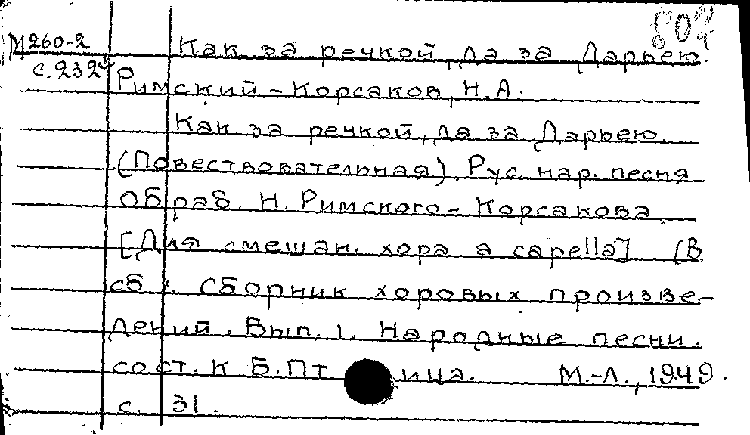 М260-2 Как за речкой, да за Дарьею.
с.232
Римский-Корсаков, Н.А.
Как за речкой, да за Дарьею.
(Повествовательная). Рус. нар. песня
обраб. Н. Римского-Корсакова.
[Для смешан. хора a capella] (В
сб.: Сборник хоровых произве-
дений. Вып. 1. Народные песни.
сост. К.Б.Птица. М.-Л., 1949.
с. 31.